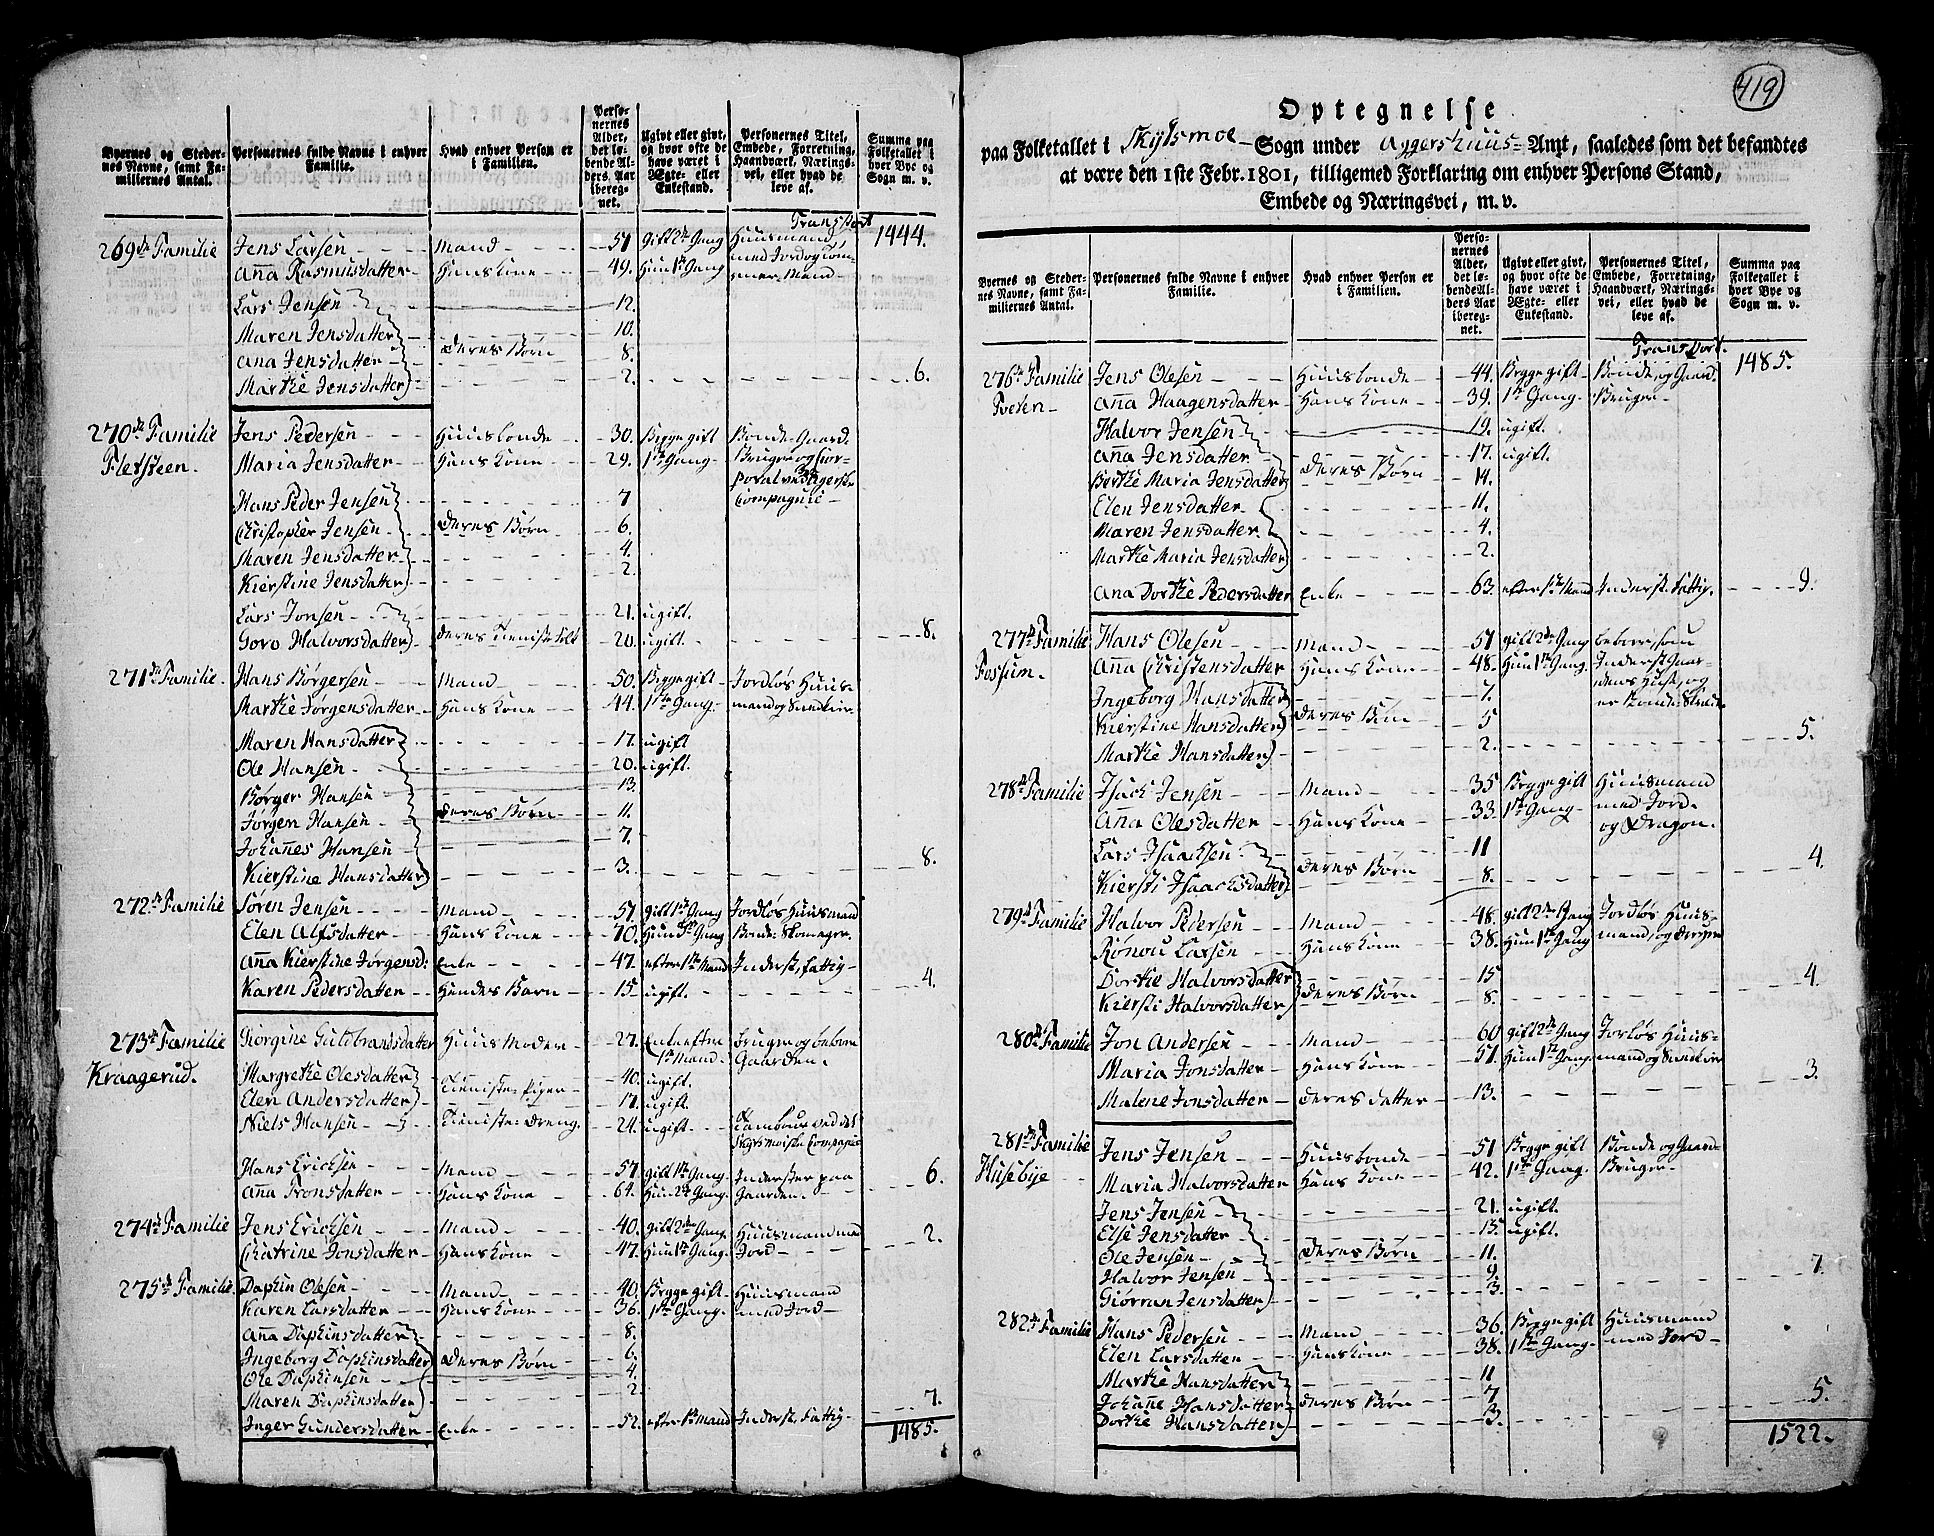 419
Byernes og Steder-nes Navne, samt Fa-miliernes Antal.
Personernes fulde Navne i enhver Familie.
Hvad enhver Person er i Familien.
Perso-nernes Alder, det lø-bende Al-ders Aar iberegnet.
Ugivt eller givt, og hvor ofte de have været i Ægte- eller Enkestand.
Personernes Titel, Embede, Forretning, Haandværk, Nærings-vei, eller hvad de leve af.
Summa paa Folketallet i hver Bye og Sogn m. v.
Transport 1444.
269de Familie Jens Larsen Mand 51 gift 2de Gang Huusmand
Anna Rasmusdatter Hans Kone 49. Hun 1te Gang med Jord og Tømmer-Mand
Lars Jensen 12.
Maren Jensdatter 10.
Ana Jensdatter Deres Børn 8.
Marthe Jensdatter 2. 6.
270de Familie Jens Pedersen Huusbonde 30. Begge gift Bonde-Gaard
Fletsteen. Maria Jensdatter Hans Kone 29. 1te Gang Bruger og Cor-
poral ved
Hans Peder Jensen 7 Compagnie
Christopher Jensen Deres Børn 6.
Maren Jensdatter 4.
Kierstine Jensdatter 2.
Lars Jonsen 21. ugift.
Goro Halvorsdatter Deres Tieniste Folk 20. ugift. 8.
271de Familie Hans Børgersen Mand 50. Begge gift Jordløs Huus-
Marthe Jørgensdatter Hans Kone 44. 1te Gang. mand og
Maren Hansdatter 17. ugift
Ole Hansen 20. ugift.
Børger Hansen 13.
Jørgen Hansen Deres Børn 11.
Johannes Hansen 7.
Kierstine Hansdatter 3. 8.
272de Familie Søren Jensen Mand 57. gift 1te Gang Jordløs Huusmand
Elen Alfsdatter Hans Kone 70. Hun Gang Bonde-Skomager.
Anna Kierstine Jørgensd: Enke 47. efter 1te Mand Inderst, fattig
Karen Pedersdatter Hendes Barn 15. ugift. 4.
273de Familie Giorgine Guldbrandsdatter Huus Moder 27. Enke efter bruger og beboer
Kraagerud. 1te Mand Gaarden.
Margrethe Olesdatter Tieniste-Piger 40. ugift.
Elen Andersdatter 17. ugift.
Niels Hansen Tieniste-Dreng. 24. ugift Tambour ved det
Compagnie
Hans Ericksen Mand 57. gift 1te Gang Inderster paa
Anna Tronsdatter Hans Kone 64. Hun 2de Gang. Gaarden. 6.
274de Familie Jens Ericksen Mand 40. gift 2de Gang. Huusmand med
Chatrine Jonsdatter Hans Kone 47. Hun 1te Gang. Jord 2.
275de Familie Daphin Olesen Mand 40. Begge gift Huusmand
Karen Larsdatter Hans Kone 36. 1te Gang. med Jord
Anna Daphinsdatter 8.
Ingeborg Daphinsdatter Deres Børn 6.
Ole Daphinsen 4.
Maren Daphinsdatter 2
Inger Gundersdatter Enke 52. efter 1te Mand Inderst. fattig. 7.
1485.
Optegnelse
paa Folketallet i Skydsmoe Sogn under Aggershuus Amt, saaledes som det befandtes
at være den 1ste Febr. 1801, tilligemed Forklaring om enhver Persons Stand,
Embede og Næringsvei, m. v.
Byernes og Steder-nes Navne, samt Fa-miliernes Antal.
Personernes fulde Navne i enhver Familie.
Hvad enhver Person er i Familien.
Perso-nernes Alder, det lø-bende Al-ders Aar iberegnet.
Ugivt eller givt, og hvor ofte de have været i Ægte- eller Enkestand.
Personernes Titel, Embede, Forretning, Haandværk, Nærings-vei, eller hvad de leve af.
Summa paa Folketallet i hver Bye og Sogn m. v.
Transport. 1485.
276de Familie Jens Olesen Huusbonde 44. Begge gift Bonde, og Gaard.
Tveten Anna Haagensdatter Hans Kone 39. 1te Gang. Bruger
Halvor Jensen 19. ugift.
Ana Jensdatter 17. ugift.
Berthe Maria Jensdatter Deres Børn 14.
Elen Jensdatter 11.
Maren Jensdatter 4.
Marthe Maria Jensdatter 2.
Ana Dorthe Pedersdatter Enke 63. efter 1te Mand Inderst. fattig. 9.
277de Familie Hans Olesen Mand 51 gift 2de Gang beboer, som
Fossum. Anna Christensdatter Hans Kone 48. Hun 1te Gang. Inderst Gaar-
Ingeborg Hansdatter 7. dens Huse, og
Kierstine Hansdatter Deres Børn 5 er Bonde-
Marthe Hansdatter 2. 5.
278de Familie Isack Jensen Mand 35 Begge gift Huusmand
Anna Olesdatter Hans Kone 33. 1te Gang med Jord
og Dragon.
Lars Isacksen Deres Børn 11
Kiersti Isachsdatter 8. 4.
279de Familie Halvor Pedersen Mand 48. gift 2de Gang Jordløs Huus-
Rønou Larsen Hans Kone 38. Hun 1te Gang mand, og
Dorthe Halvorsdatter 15
Kiersti Halvorsdatter Deres Børn 8. 4.
280de Familie Jon Andersen Mand 60 gift 2de Gang Jorløs Huus-
Maria Jonsdatter Hans Kone 51. Hun 1te Gang. mand og
Malene Jonsdatter Deres datter 13. 3.
281de Familie Jens Jensen Huusbonde 51 Begge gift Bonde og Gaard
Husebye Maria Halvorsdatter Hans Kone 42. 1te Gang. Bruger
Jens Jensen 21. ugift.
Else Jensdatter 15. ugift.
Ole Jensen Deres Børn 11.
Halvor Jensen 9.
Giørran Jensdatter 3. 7.
282de Familie Hans Pedersen Mand 36. Begge gift Huusmand
Elen Larsdatter Hans Kone 38. 1te Gang. med Jord
Marthe Hansdatter 11
Johanne Hansdatter Deres Børn 7
Dorthe Hansdatter 3. 5.
1522.